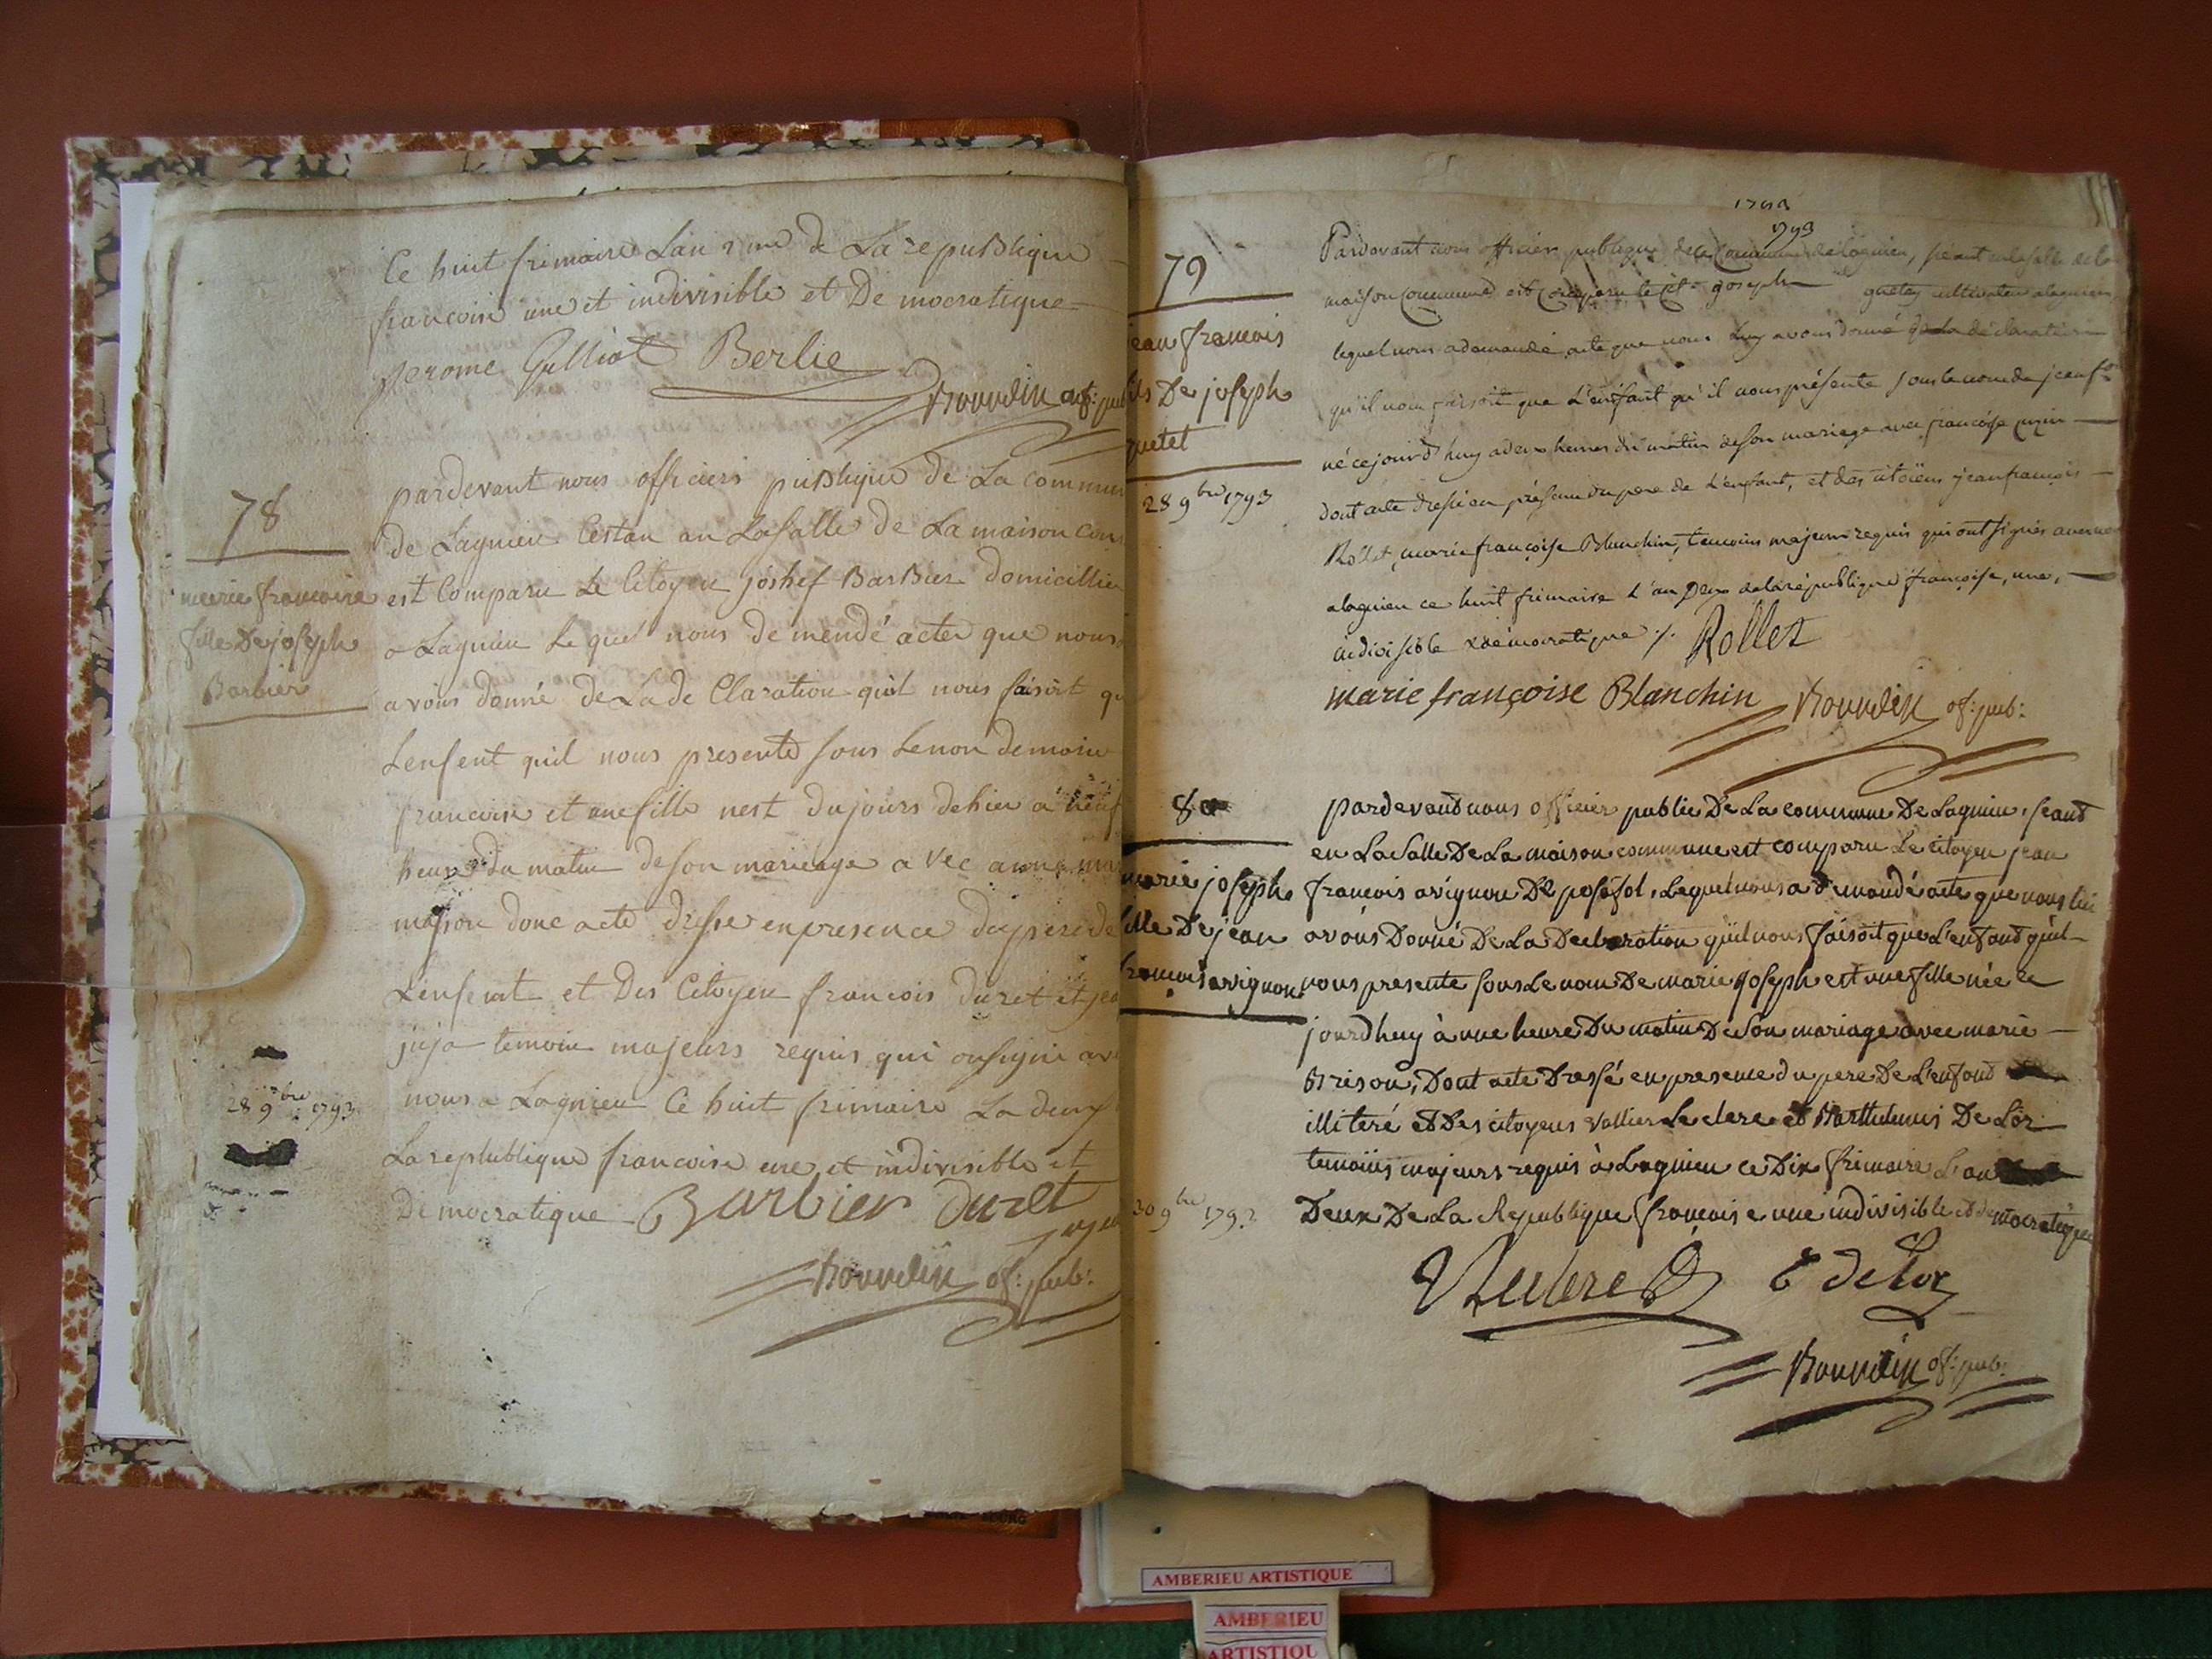 Ce huit frimaire Lan 2 me de La repuBlique
francoise une et indivisible et De mocratique
jerome Gulliot Berlie
Bourdin of: pub
78
marie francoise
fille De joseph
Barbier
28 9bre 1793
pardevant nous officiers puBlique de La commun
de Lagnieu Cestan an LaSalle de La maison com
est Comparu Le Citoyen joshef BarBier domicillier
a Lagnieu Le quel nous demendé acter que nous
avons donné de La de Claration quil nous faisoit qu
Lenfent quil nous presente sous Le non de marie
francoise et une fille nest du jours de hier a neuf
heure du matin de son marieage a vec anne
masson donc acte dresse en presence du pere de
Lenfent et Des Citoyen francois duret et jea
juja temoin majeurs requis qui on signé av
nous a Lagnieu Ce huit frimaire La deux
La republique francoise une et indivisible et
Démocratique Barbier Duret
juja
Bourdin of: pub:
1793
1793
79
jean francois
fils De joseph
quetet
28 9bre 1793
Pardevant nous officier publique de la Commune de Lagnieu, séant en la salle de la
maison Commune est Comparu le cit. joseph quetet cultivateur a lagnieu,
lequel nous a demandé acte que nous luy avons donné de la déclaration
qu'il nous faisoit que l'enfant qu'il nous présente sous le nom de jean f.ois
né cejourd'huy a deux heures du matin de son mariage avec françoise
dont acte dressé en présence du pere de l'enfant, et des citoïens jean françois
Rollet, marie françoise Blanchin, temoins majeurs requis qui ont signés avec nous
a lagnieu ce huit frimaire l'an deux de la république françoise, une,
indivisible & démocratique ./. Rollet
marie françoise Blanchin Bourdin of: pub:
80
marie joseph
fille De jean
francois avignon
30 9bre 1793
pardevant nous officier public De La commune De Lagnieu, seant
en La Salle De La maison commune est comparu Le citoyen jean
francois avignon De posafol, Lequel nous a demandé acte que nous lui
avons Donné De La Declaration quil nous faisoit que L'enfant quil
nous presente sous Le nom De marie joseph est une fille née ce
jourdhuy à une heure Du matin De Son mariage avec marie
Brison, Dont acte Dressé en presence du pere De L'enfant
illiteré et Des citoyens Vallier Leclerc et Barthelemis De Lor
temoins majeurs requis à Lagnieu ce Dix frimaire L'an
Deux De La Republique francoise une indivisible et democratique
VLeclerc B deLor
Bourdin of: pub:
AMBERIEU ARTISTIQUE
AMBERIEU
ARTISTIQU